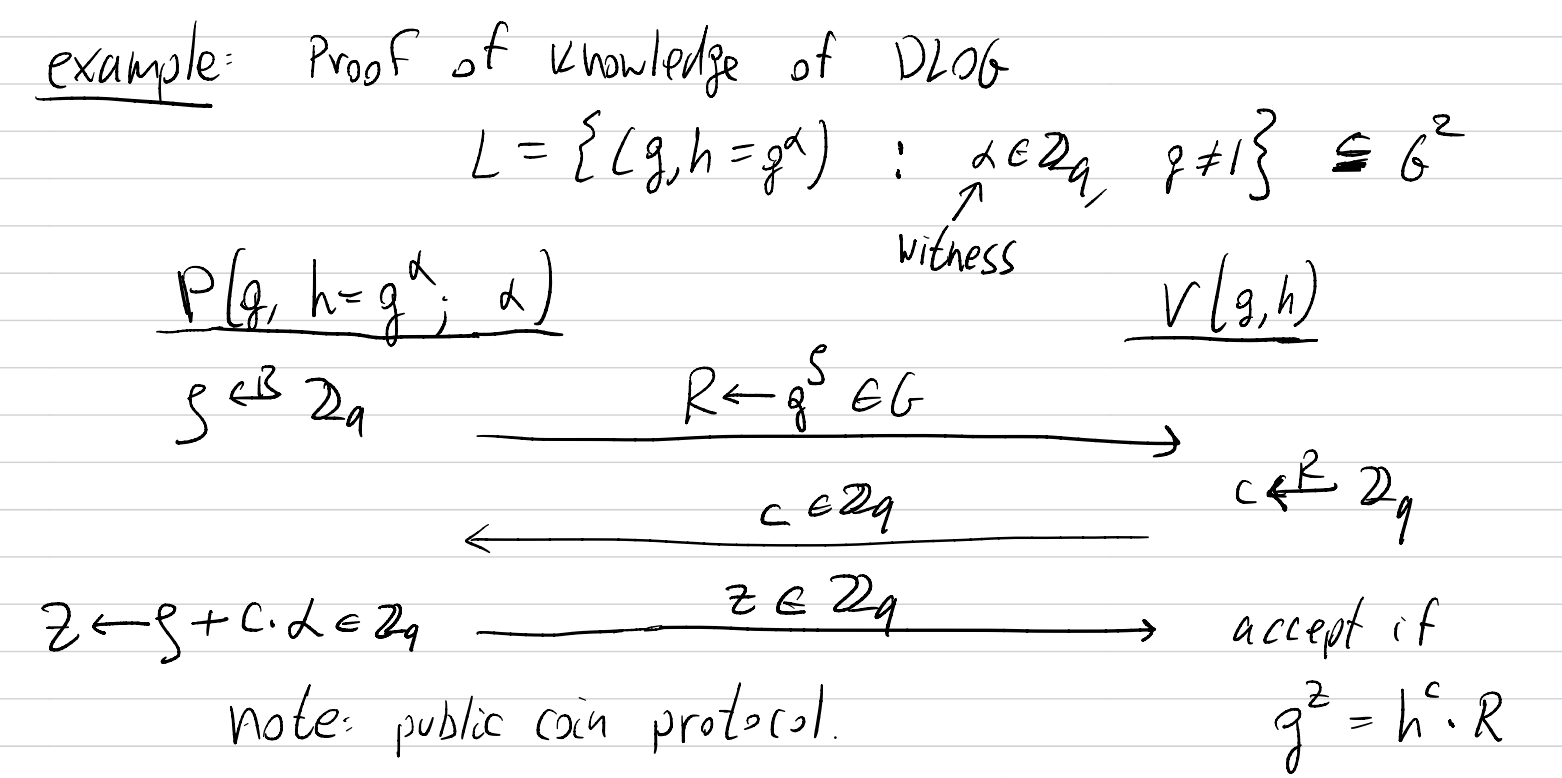 example: Proof of knowledge of DLOG
L = {(g, h = g^α) : α ∈ ℤq, g ≠ 1} ⊆ G²
witness
P(g, h = g^α; α) V(g,h)
ρ ←R ℤq R ← g^ρ ∈ G
c ∈ ℤq c ←R ℤq
z ← ρ + c·α ∈ ℤq z ∈ ℤq accept if
note: public coin protocol. g^z = h^c · R